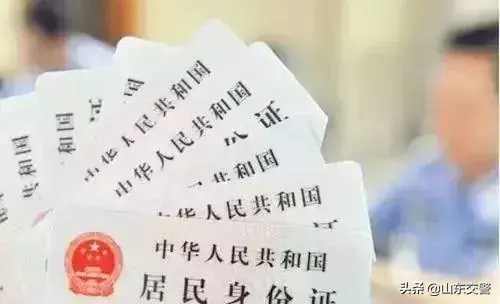 中华人民共和国
中华人民共和国
份证
共和国
中华人民共和国
中华人民共和国
居民身份证
头条 @山东交警